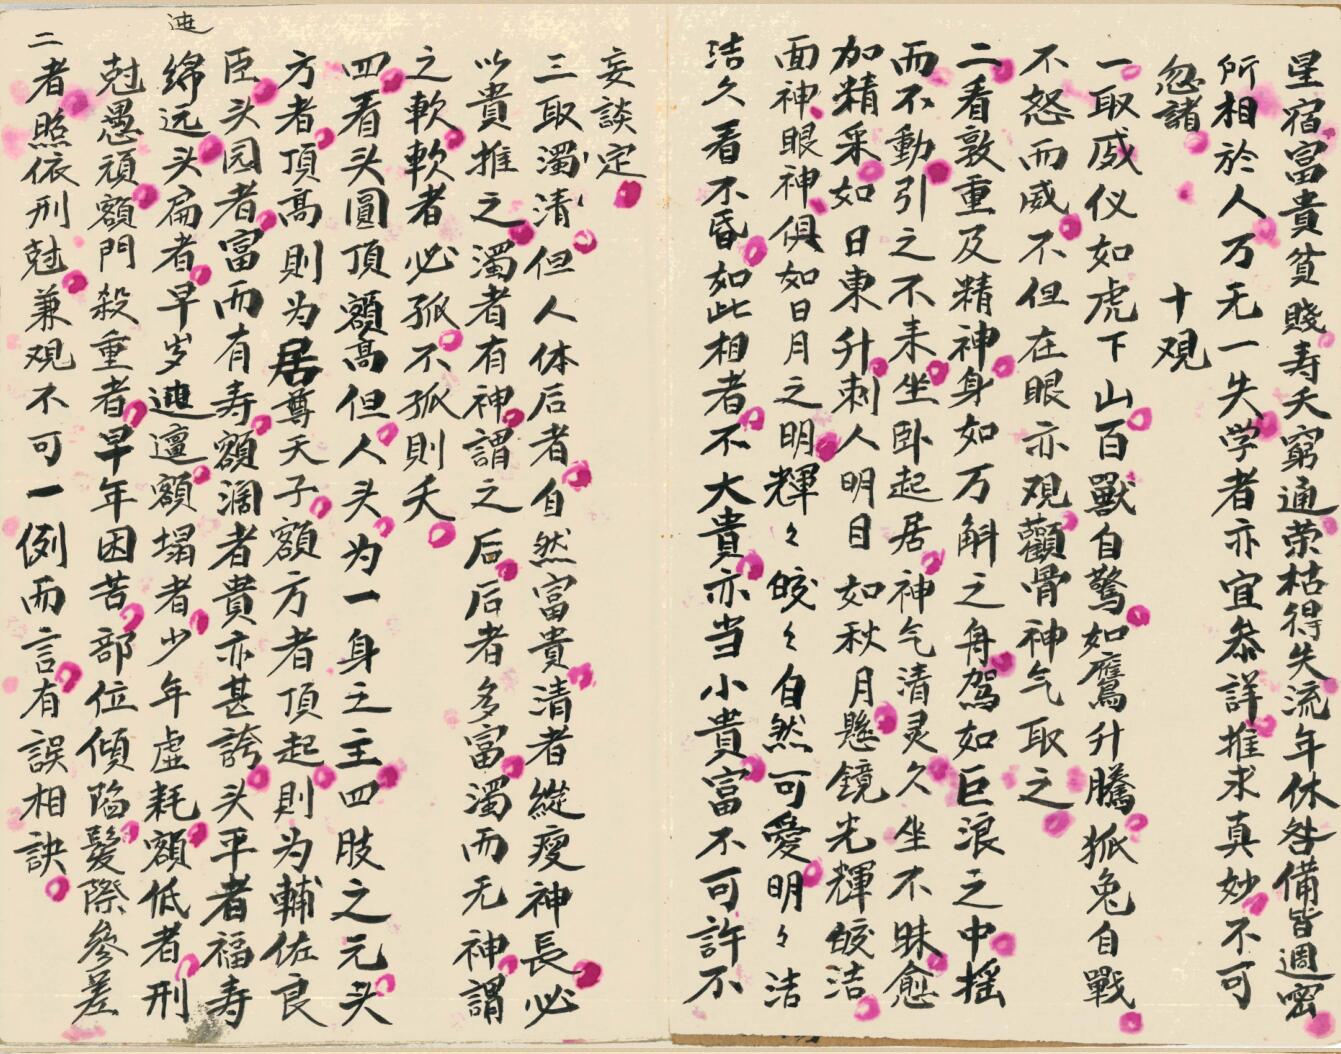 星宿富貴貧賤寿夭窮通荣枯得失流年休咎備皆週密
所相於人万无一失学者亦宜叅詳推求真妙不可
忽諸　十观
一取威仪如虎下山百獸自驚如鷹升騰狐兔自戰
不怒而威不但在眼亦观顴骨神气取之
二看敦重及精神身如万斛之舟駕如巨浪之中揺
而不動引之不来坐卧起居神气清灵久坐不昧愈
加精采如日東升刺人明目如秋月懸鏡光輝皎洁
面神眼神俱如日月之明輝々皎々自然可愛明々洁
洁久看不昏如此相者不大貴亦当小貴富不可許不
妄談定
三取濁清但人体后者自然富貴清者縱瘦神長必
以貴推之濁者有神謂之后后者多富濁而无神謂
之軟軟者必孤不孤則夭
四看头圓頂額高但人头为一身之主四肢之元头
方者頂高則为居尊天子額方者頂起則为輔佐良
臣头园者富而有寿額阔者貴亦甚誇头平者福寿
綿远头扁者早岁迍邅額塌者少年虚耗額低者刑
迍
尅愚頑額門殺重者早年困苦部位傾陷鬓際參差
二者照依刑尅兼观不可一例而言有誤相訣